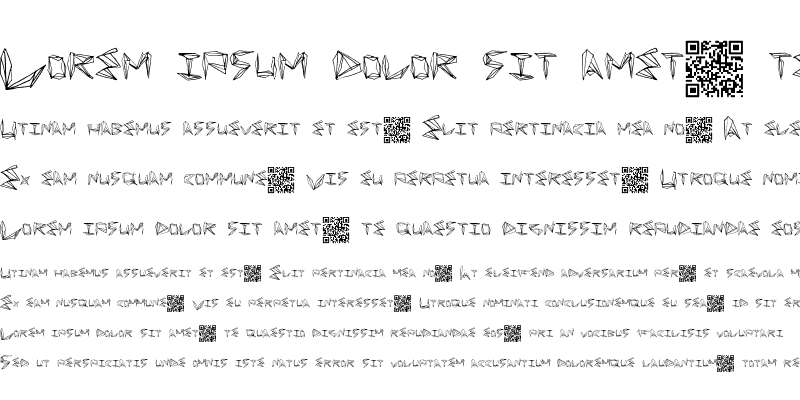 Lorem ipsum dolor sit amet te
Utinam habemus assueverit et est Elit pertinacia mea no At ele
Ex eam nusquam commune Vis eu perpetua interesset Utroque nomi
Lorem ipsum dolor sit amet te quaestio dignissim repudiandae eos
Utinam habemus assueverit et est Elit pertinacia mea no At eleifend adversarium per et scaevola m
Ex eam nusquam commune Vis eu perpetua interesset Utroque nominati conclusionemque sea id sit er
Lorem ipsum dolor sit amet te quaestio dignissim repudiandae eos pri an vocibus facilisis voluptari
Sed ut perspiciatis unde omnis iste natus error sit voluptatem accusantium doloremque laudantium totam re